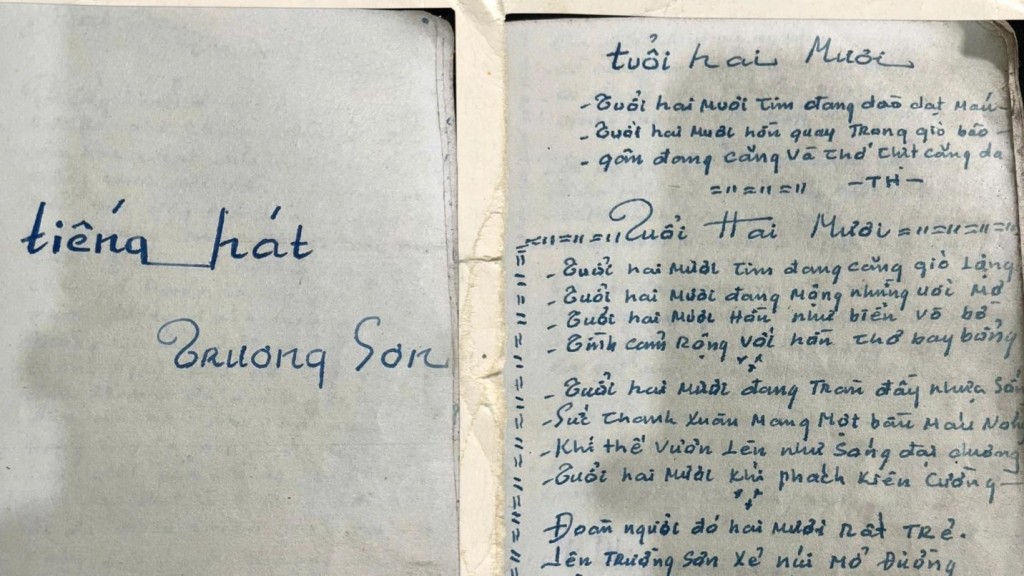 tiếng hát
Trương Sơn
tuổi hai Mươi
- Tuổi hai Mươi Tim đang dào dạt Máu
- Tuổi hai Mươi hồn quay Trong gió bão -
- gân đang căng và Thớ Thịt căng da
="="=" -TH-
="="=" Tuổi Hai Mươi ="="="="
- Tuổi hai Mươi Tim đang căng gió Lộng
- Tuổi hai Mươi đang Mộng những ước Mơ
- Tuổi hai Mươi Hồn như biển vỗ bờ
- Tình cảm Rộng Với hồn Thơ bay bổng
- Tuổi hai Mươi đang Tràn đầy nhựa Số
- Sức Thanh Xuân Mang Một bầu Máu Nón
- Khí thế Vươn Lên như Sóng đại dương
- Tuổi hai Mươi Khí phách Kiên Cường -
Đoàn người đó hai Mươi Rất TRẻ.
Lên Trường Sơn Xẻ núi Mở Đường